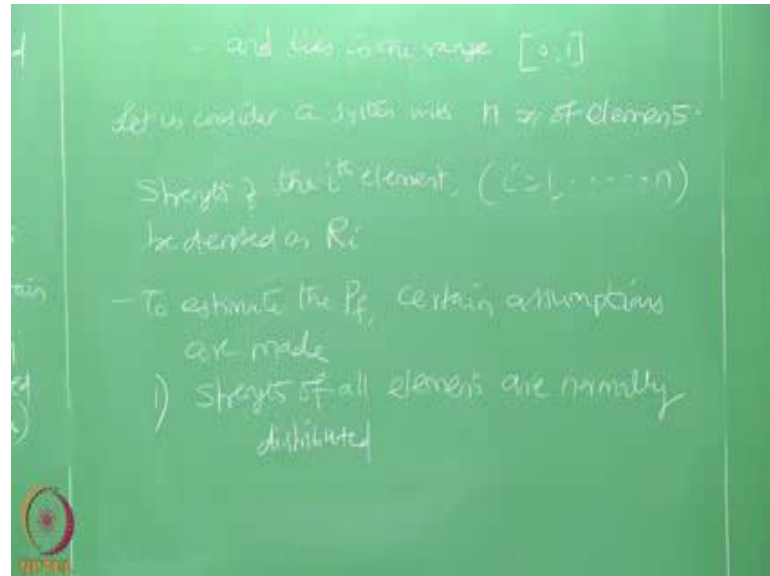 - and lies in the range [0,1]
Let us consider a system with n no of elements.
Strength of the ith element, (i=1, ..... n)
be denoted as Ri
- To estimate the Pf, certain assumptions
are made
1) Strength of all elements are normally
distributed
NPTEL